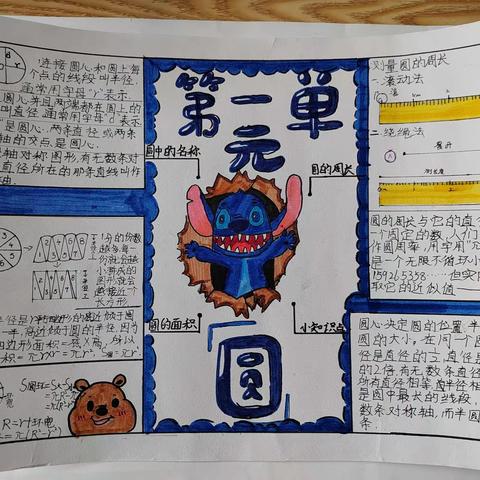 连接圆心和圆上每
个点的线段叫半径,
通常用字母"r"表示
圆心并且两端都在圆上的
叫直径通常用字母"d"表
"是圆心.两条直径或两条
轴的交点,是圆心.
轴对称图形,有无数条对
直径所在的那条直线叫作
轴.
分的份数
越多,每一
份就会越
小,拼成的
图形就会
越接近一个
长方形.
半径是
一半,高近似于圆的半径,因为
四边形面积=底×高,所以
第一单元
圆中的名称
圆的周长
圆的面积
小知识点
圆
测量圆的周长
一.滚动法
二.绕绳法
展开
测长度
圆的周长与它的直径
一个固定的数,人们
作圆周率,用字母"π"
是一个无限不循环小
159265358……但实际
取它的近似值
圆心决定圆的位置,半
圆的大小。在同一个圆
径是直径的
的2倍.有无数条直径
所有直径相等,半径相
是圆中最长的线段,
数条对称轴,而半圆
条.